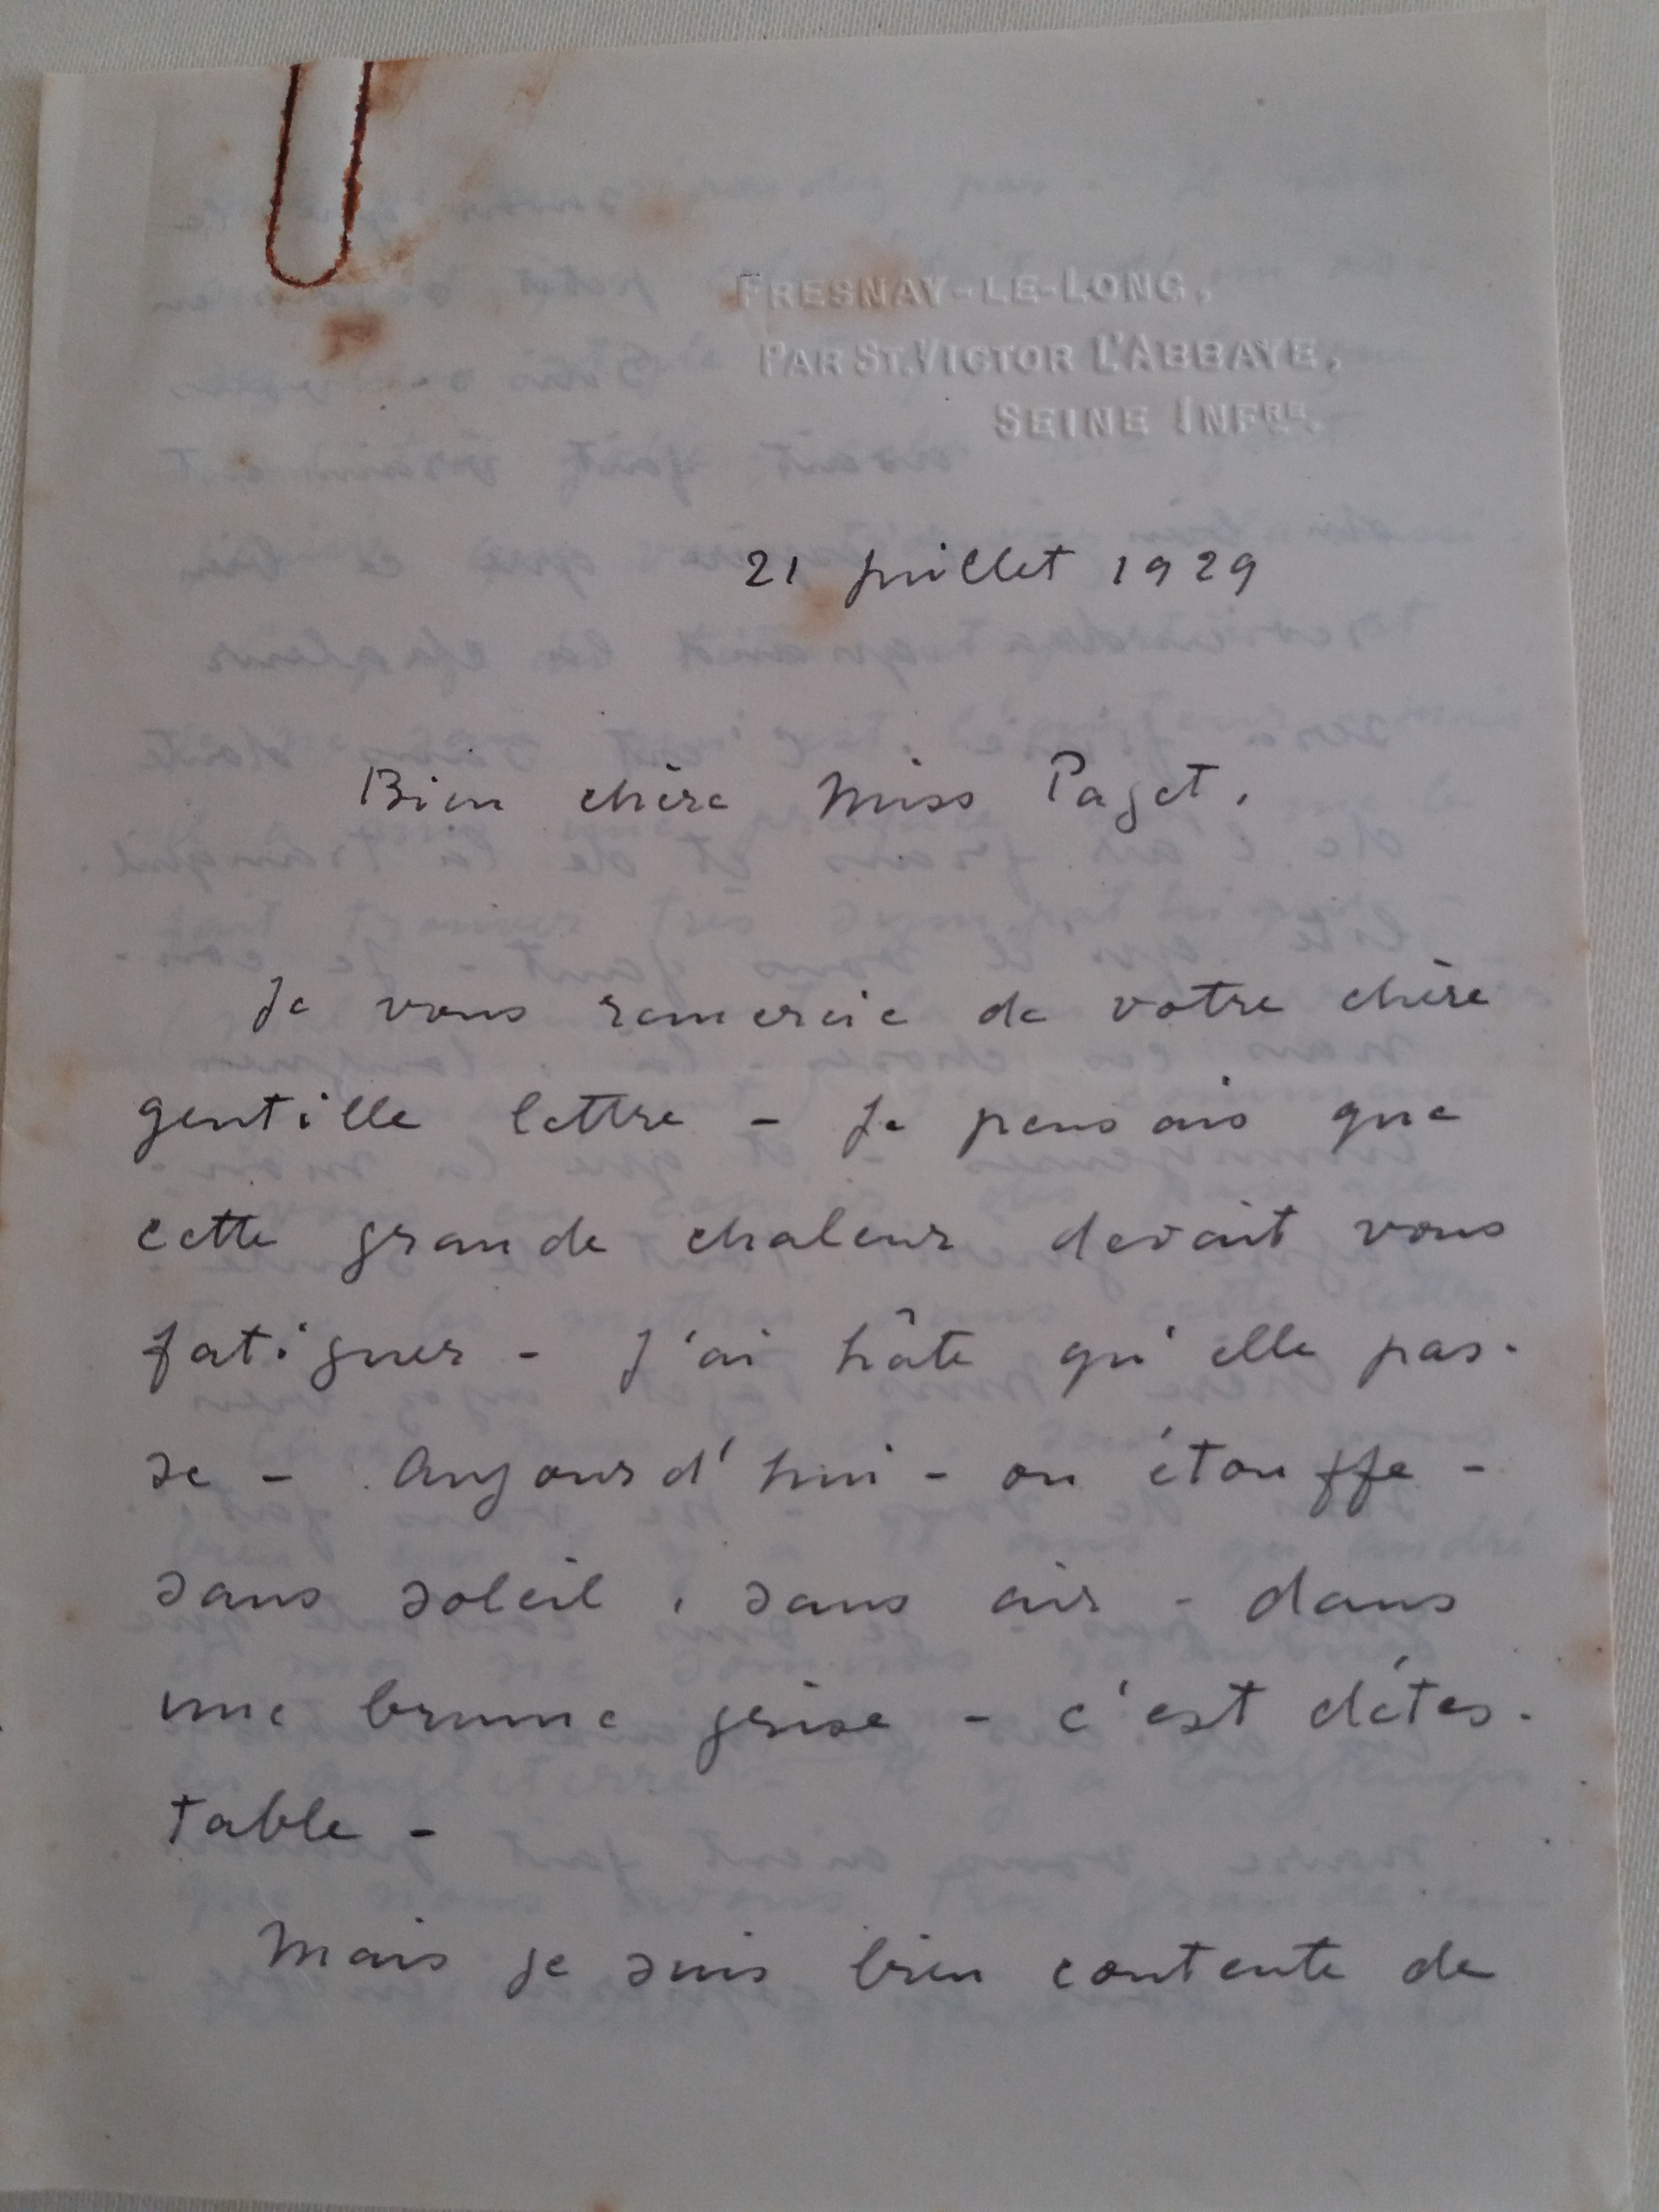 FRESNAY-LE-LONG,
PAR ST. VICTOR L'ABBAYE,
SEINE INFRE.
21 juillet 1929
Bien chère Miss Paget,
Je vous remercie de votre chère
gentille lettre - Je pensais que
cette grande chaleur devait vous
fatiguer - J'ai hâte qu'elle pas-
se - Aujourd'hui - on étouffe -
sans soleil, sans air - dans
une brume grise - c'est détes-
table -
Mais je suis bien contente de